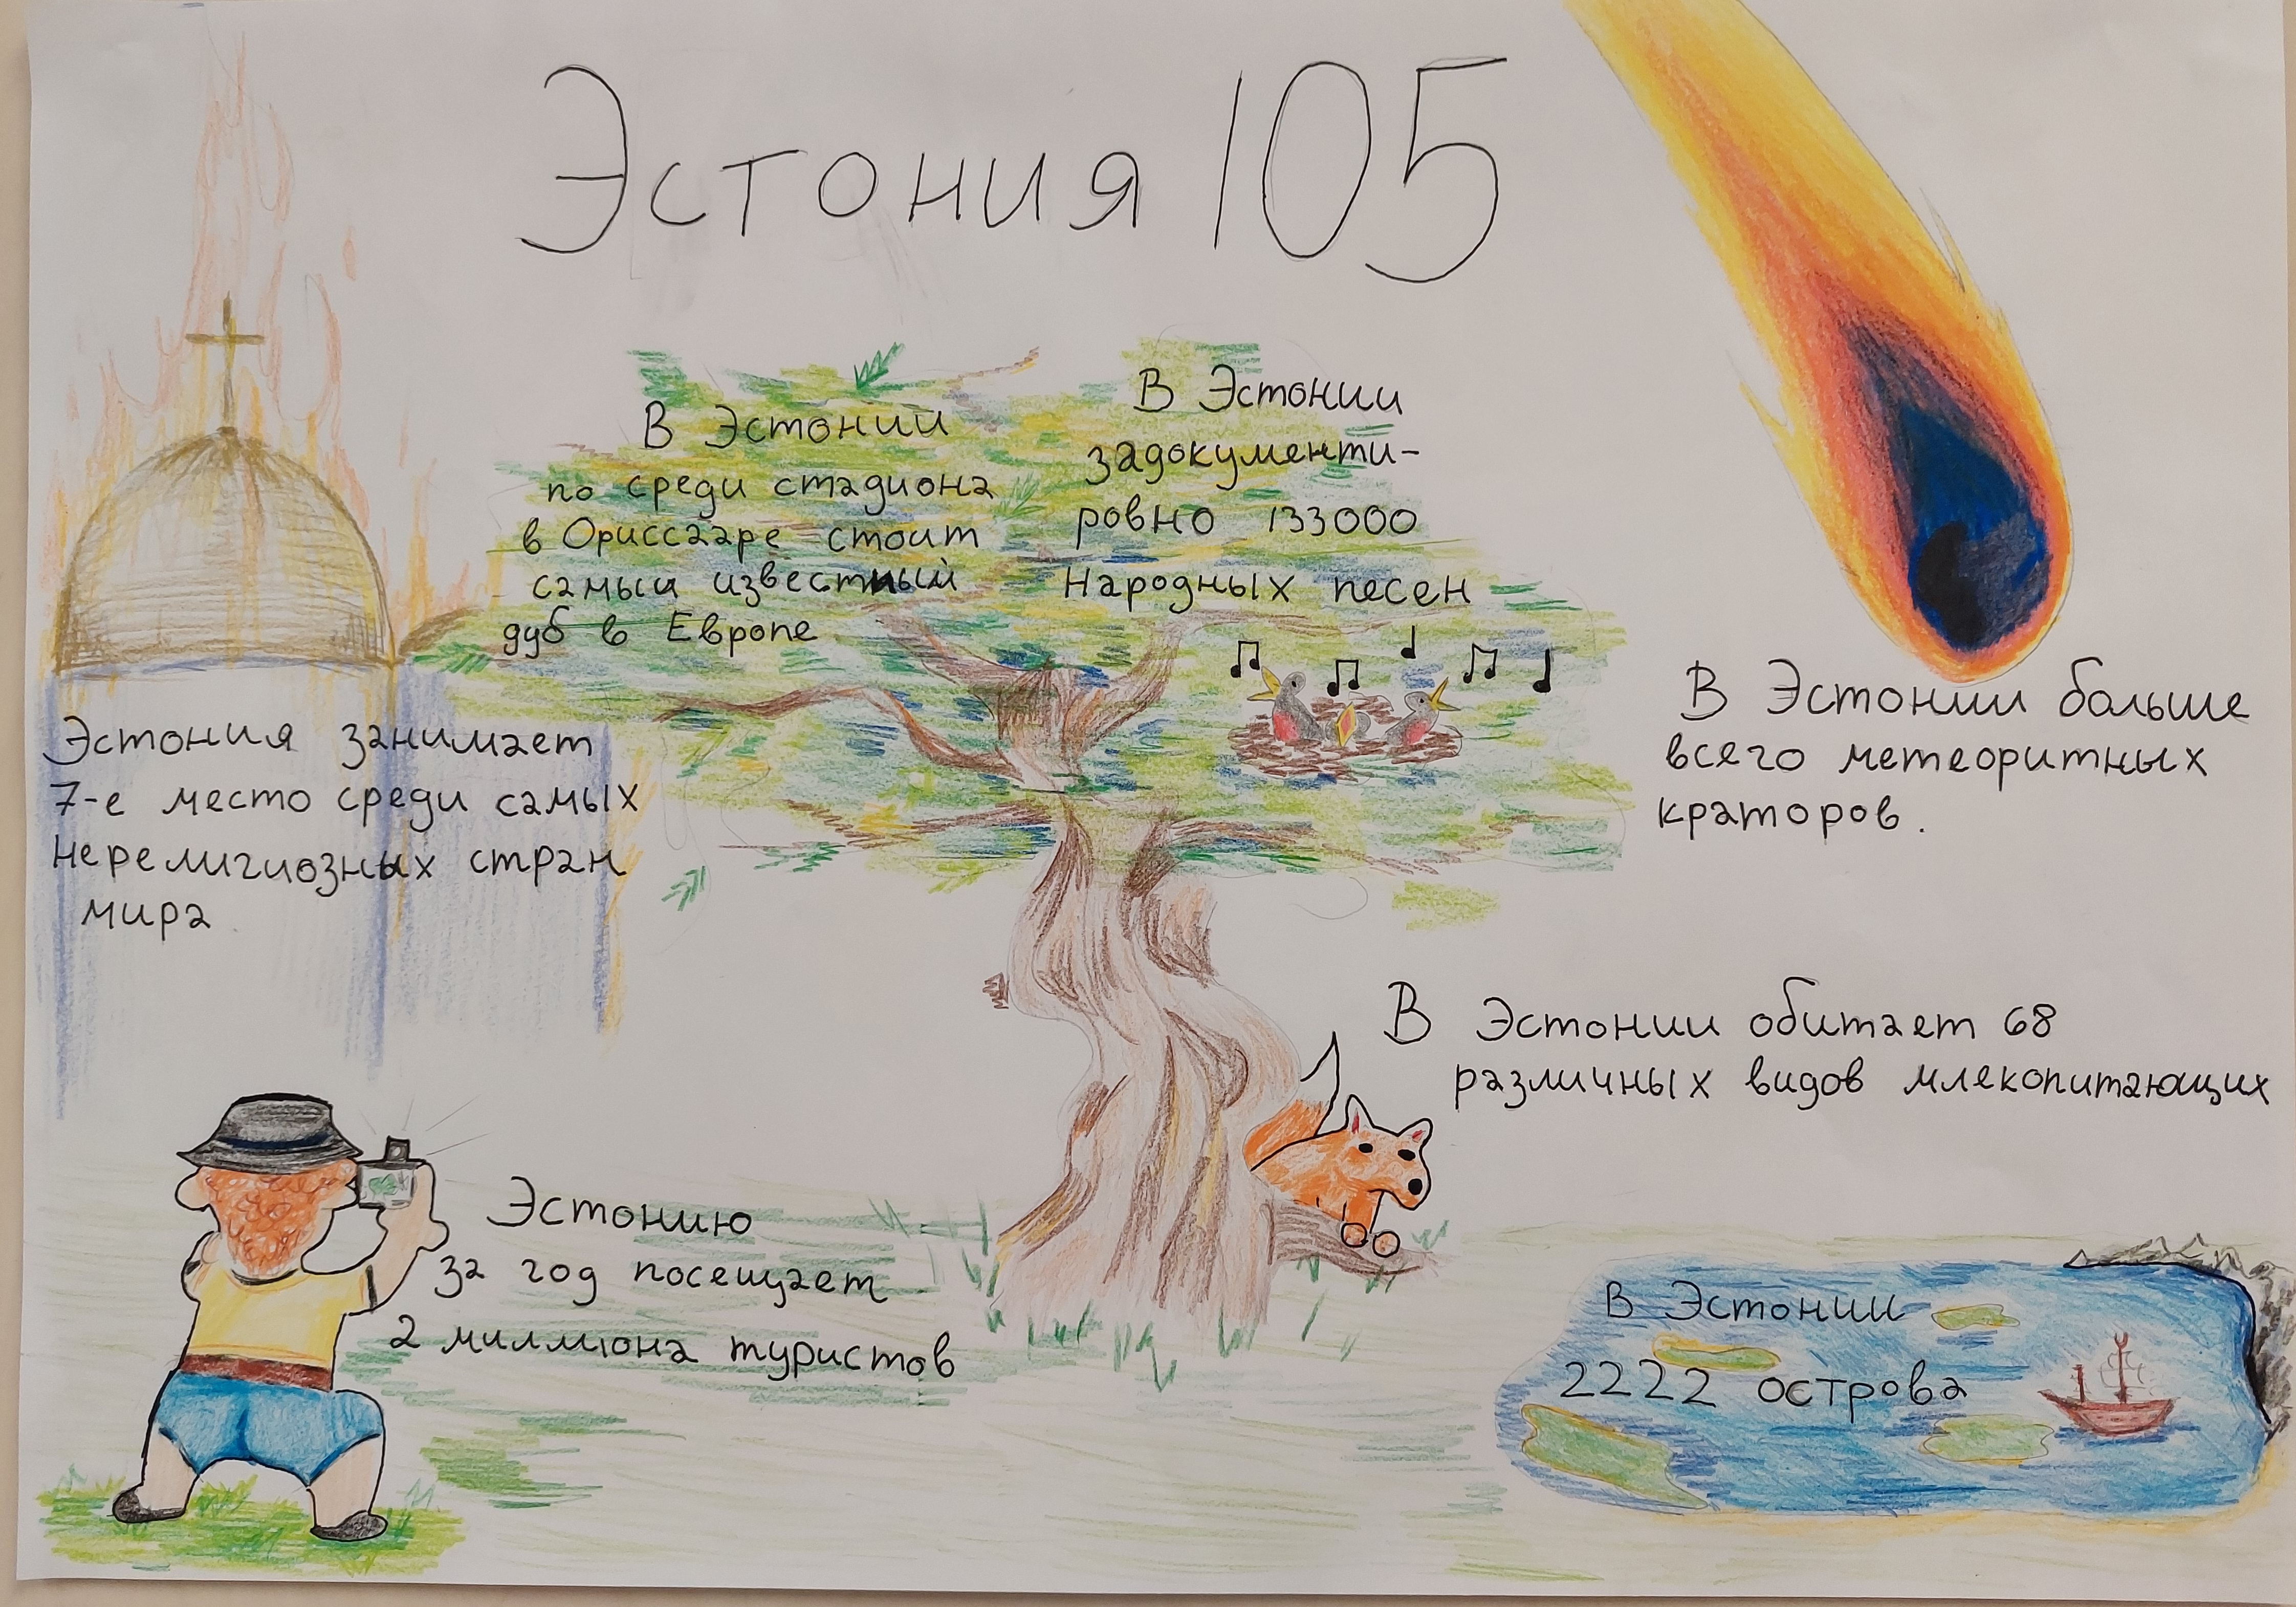 Эстония 105
В Эстонии
по среди стадиона
в Ориссааре стоит
самыи известный
дуб в Европе
В Эстонии
задокументи-
ровно 133000
Народных песен
Эстония занимает
7-е место среди самых
нерелигиозных стран
мира
В Эстонии больше
всего метеоритных
краторов.
В Эстонии обитает 68
различных видов млекопитающих
Эстонию
за год посещает
2 миллиона туристов
В Эстонии
2222 острова